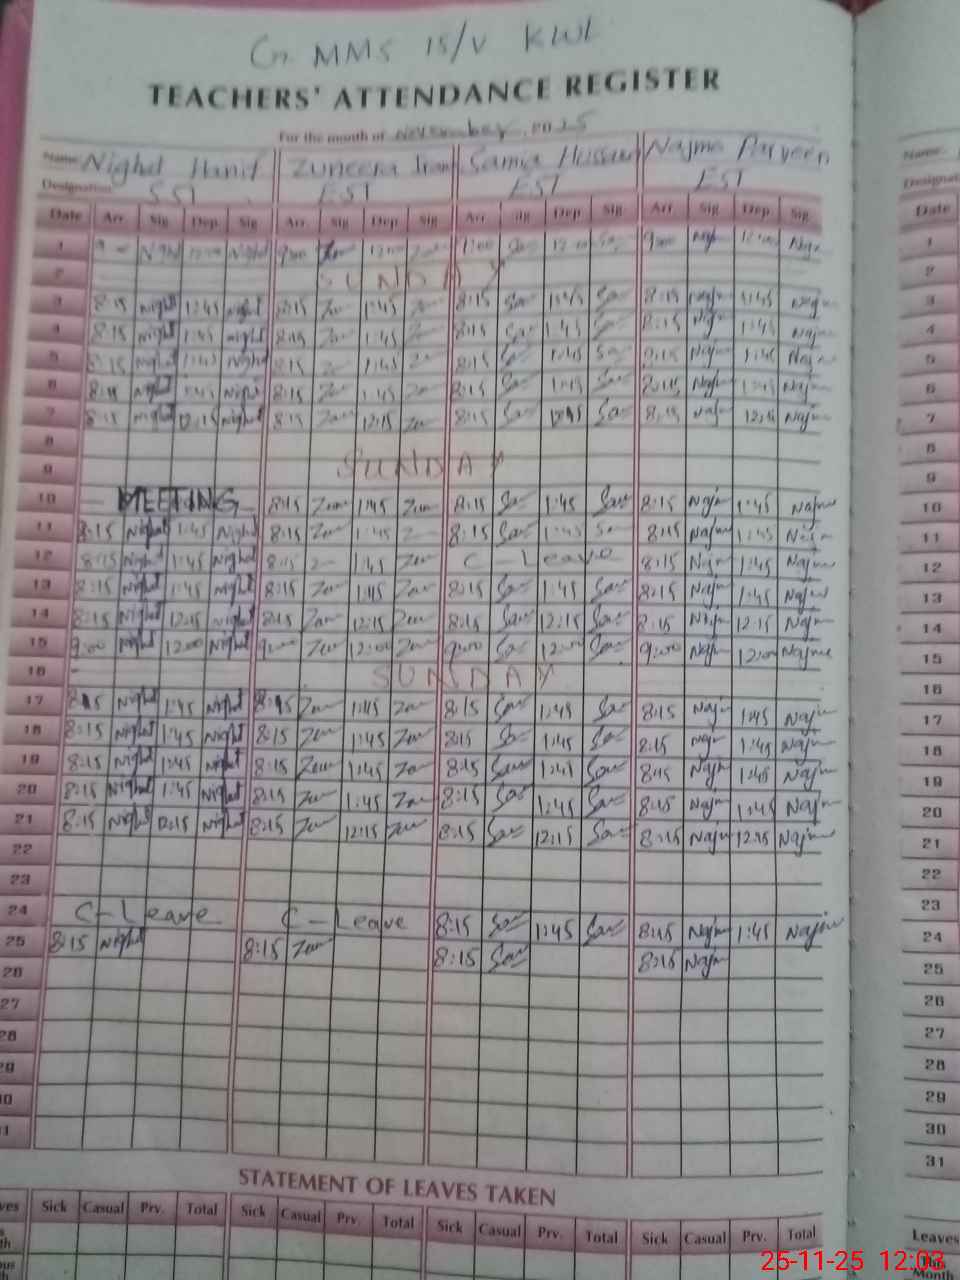 G. MMS 15/V KWL
TEACHERS' ATTENDANCE REGISTER
For the month of November 2025
Name Nighat Hanif Zuneera Iram Samia Hussain Najma Parveen
Designation SST EST EST EST
Date Arr. Sig. Dep. Sig. Arr. Sig. Dep. Sig. Arr. Sig. Dep. Sig. Arr. Sig. Dep. Sig. Date
1 9:00 12:00 9:00 12:00 9:00 Najm 1
2 SUNDAY 2
3 8:15 Nighat 1:45 Nighat 8:15 Zun 1:45 Zun 8:15 Sam 1:45 Sam 8:15 Najm 1:45 Najm 3
4 8:15 Nighat 1:45 Nighat 8:15 Zun 1:45 8:15 Sam 1:45 Sam 8:15 Najm 1:45 Najm 4
5 8:15 Nighat 1:45 Nighat 8:15 1:45 8:15 Sam 1:45 Sam 8:15 Najm 1:45 Najm 5
6 8:15 Nighat 1:45 Nighat 8:15 Zun 1:45 Zun 8:15 Sam 1:45 Sam 8:15 Najm 1:45 Najm 6
7 8:15 Nighat 12:15 Nighat 8:15 Zun 12:15 Zun 8:15 Sam 12:15 Sam 8:15 Najm 12:15 Najm 7
8 8
9 SUNDAY 9
10 MEETING 8:15 Zun 1:45 Zun 8:15 Sam 1:45 Sam 8:15 Najm 1:45 Najm 10
11 8:15 Nighat 1:45 Nighat 8:15 Zun 1:45 8:15 Sam 1:45 Sam 8:15 Najm 1:45 Najm 11
12 8:15 Nighat 1:45 Nighat 8:15 1:45 Zun C-Leave 8:15 Najm 1:45 Najm 12
13 8:15 Nighat 1:45 Nighat 8:15 Zun 1:45 Zun 8:15 Sam 1:45 Sam 8:15 Najm 1:45 Najm 13
14 8:15 Nighat 12:15 Nighat 8:15 Zun 12:15 Zun 8:15 Sam 12:15 Sam 8:15 Najm 12:15 Najm 14
15 9:00 Nighat 12:00 Nighat 9:00 Zun 12:00 Zun 9:00 Sam 12:00 Sam 9:00 Najm 12:00 Najma 15
16 SUNDAY 16
17 8:15 Nighat 1:45 Nighat 8:15 Zun 1:45 Zun 8:15 Sam 1:45 Sam 8:15 Najm 1:45 Najm 17
18 8:15 Nighat 1:45 Nighat 8:15 Zun 1:45 Zun 8:15 Sam 1:45 Sam 8:15 Najm 1:45 Najm 18
19 8:15 Nighat 1:45 Nighat 8:15 Zun 1:45 Zun 8:15 Sam 1:45 Sam 8:15 Najm 1:45 Najm 19
20 8:15 Nighat 1:45 Nighat 8:15 Zun 1:45 Zun 8:15 Sam 1:45 Sam 8:15 Najm 1:45 Najm 20
21 8:15 Nighat 12:15 Nighat 8:15 Zun 12:15 Zun 8:15 Sam 12:15 Sam 8:15 Najm 12:15 Najm 21
22 22
23 23
24 C-Leave C-Leave 8:15 Sam 1:45 Sam 8:15 Najm 1:45 Najm 24
25 8:15 Nighat 8:15 Zun 8:15 Sam 8:15 Najm 25
26 26
27 27
28 28
29 29
30 30
31 31
STATEMENT OF LEAVES TAKEN
Sick Casual Prv. Total Sick Casual Prv. Total Sick Casual Prv. Total Sick Casual Prv. Total Leaves
This Month
25-11-25 12:03